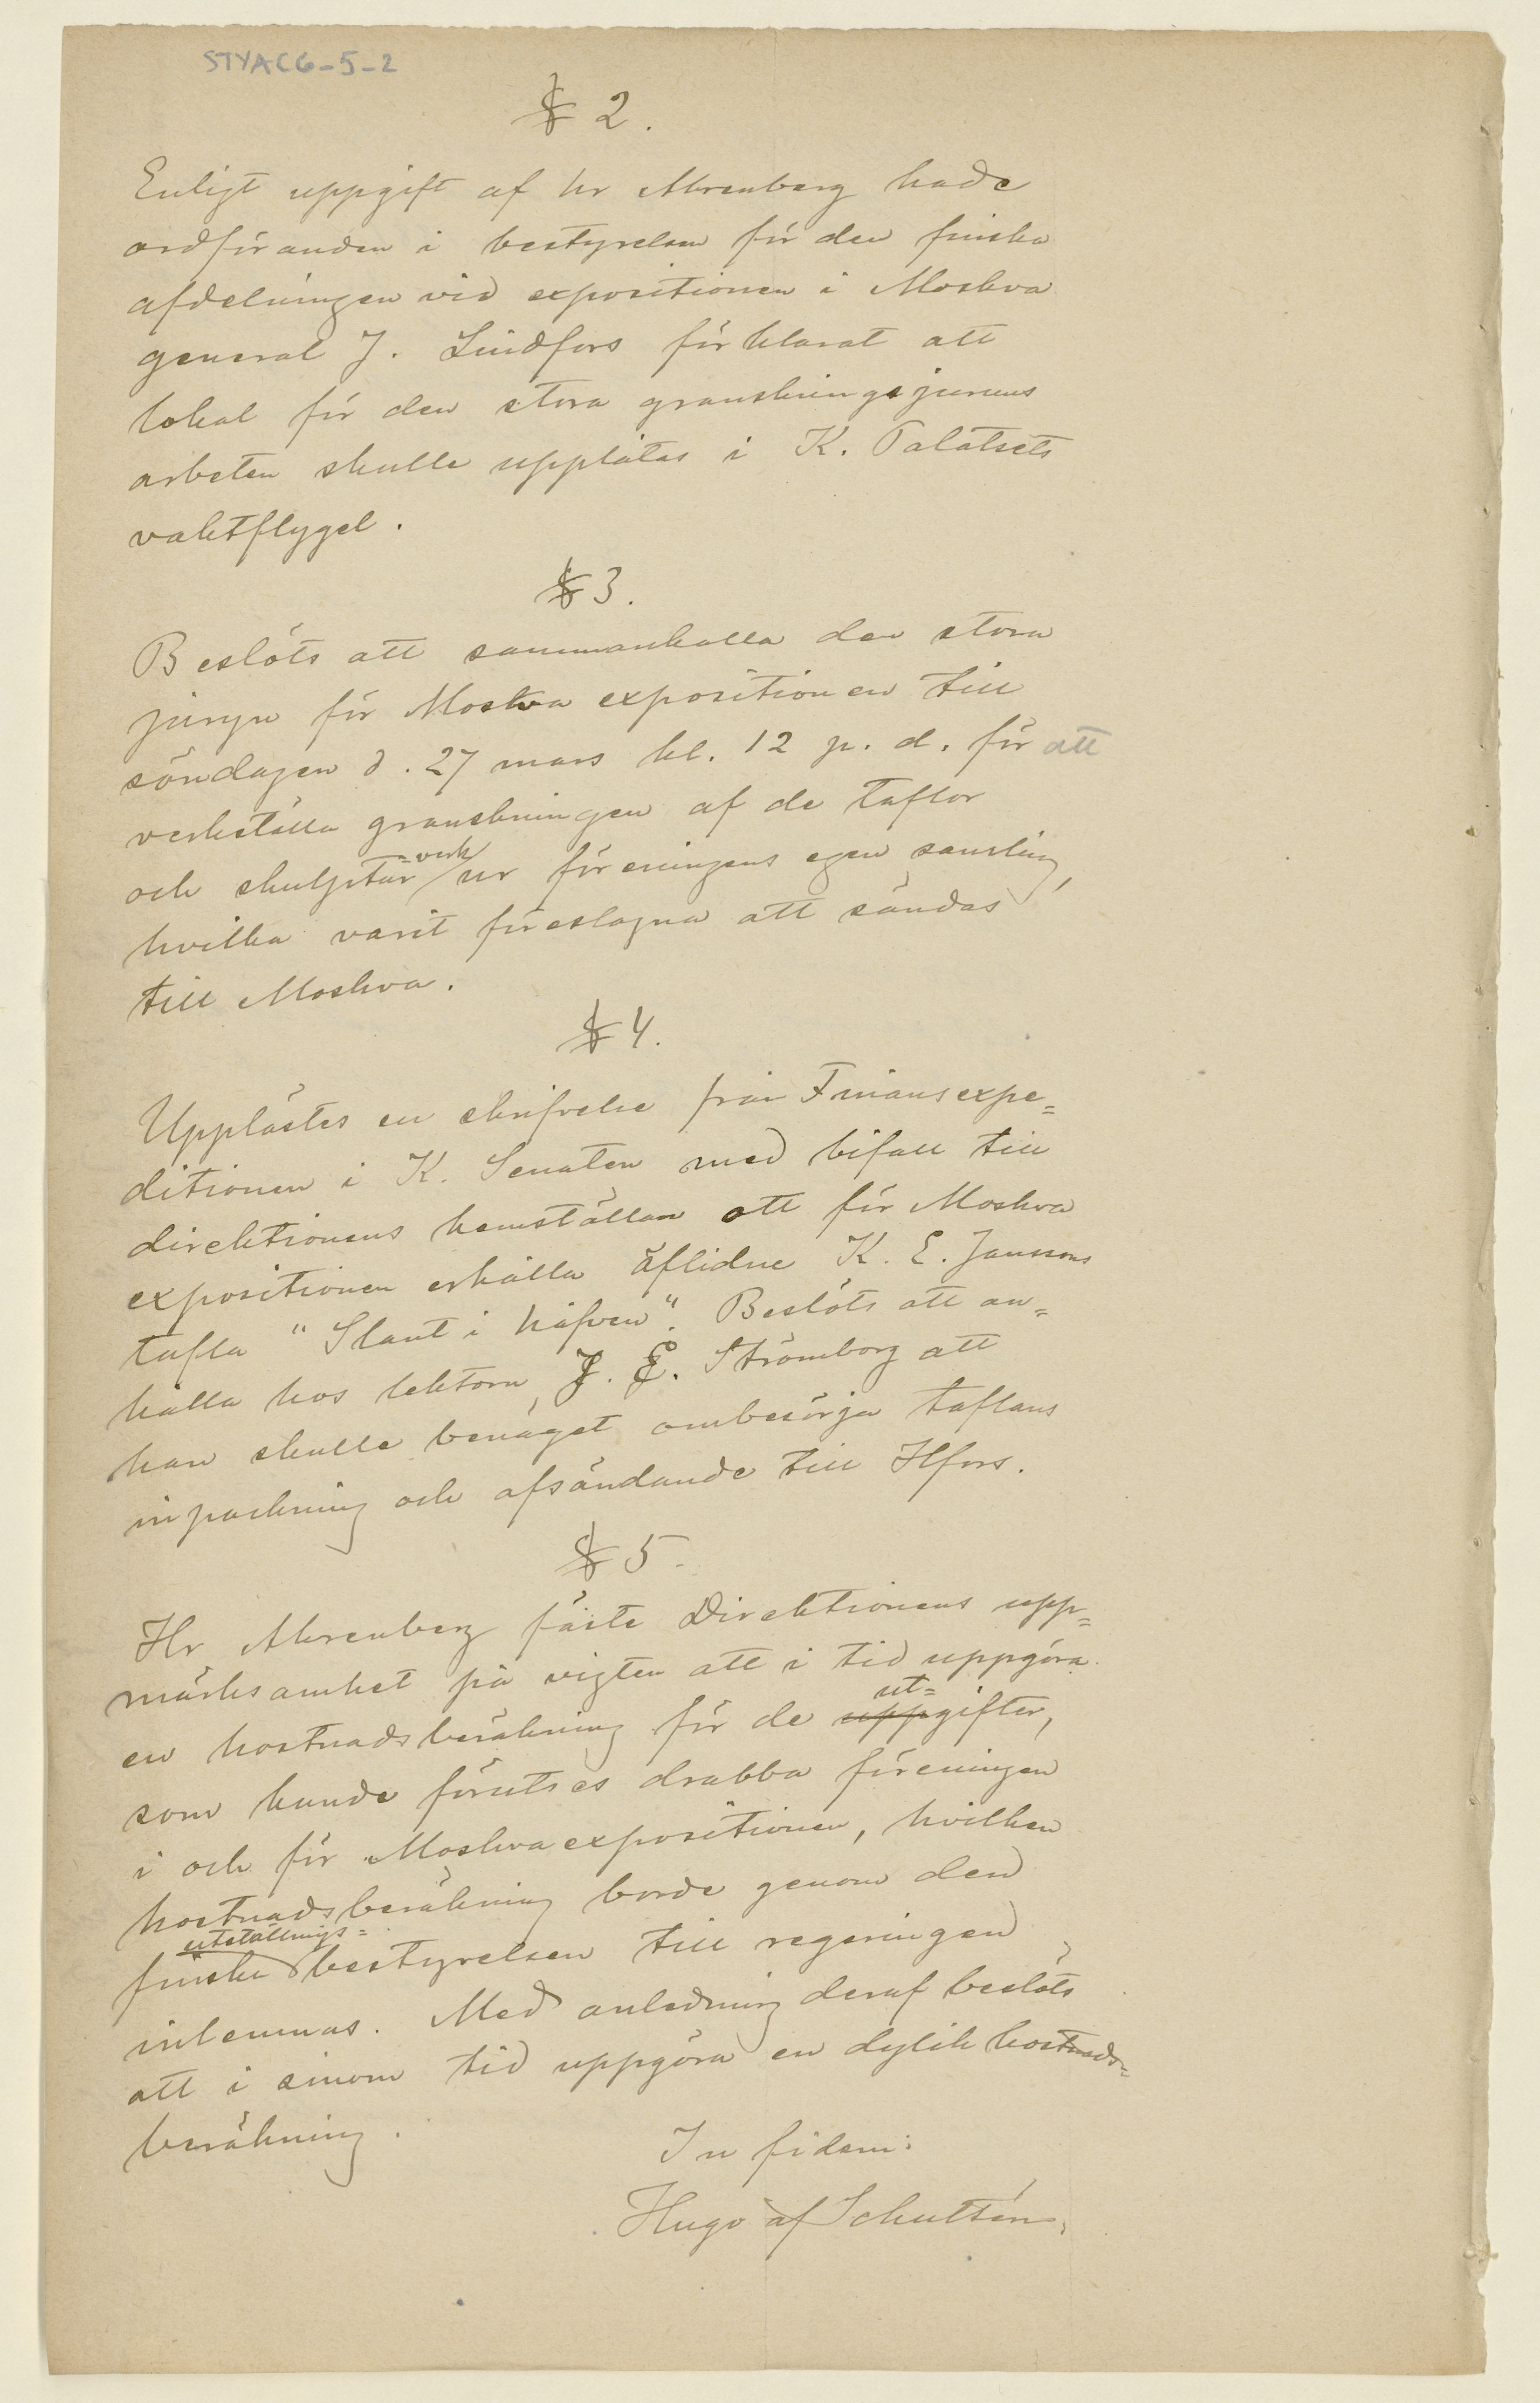 STYAC6-5-2
§ 2.
Enligt uppgift af hr Ahrenberg hade
ordföranden i bestyrelsen för den finska
afdelningen vid expositionen i Moskva
general J. Lindfors förklarat att
lokal för den stora granskningsjuryns
arbeten skulle upplåtas i K. Palatsets
vaktflygel.
§ 3.
Beslöts att sammankalla den stora
juryn för Moskva expositionen till
söndagen d. 27 mars kl. 12 p. d. för att
verkställa granskningen af de taflor
och skulptur-verk ur föreningens egen samling,
hvilka varit föreslagna att sändas
till Moskva.
§ 4.
Upplästes en skrifvelse från Finansexpe=
ditionen i K. Senaten med bifall till
direktionens hemställan att för Moskva
expositionen erhålla aflidne K. E. Janssons
tafla "Slant i håfven". Beslöts att an=
hålla hos lektorn J. E. Strömborg att
han skulle benäget ombesörja taflans
inpackning och afsändande till Hfors.
§ 5.
Hr Ahrenberg fäste Direktionens upp=
märksamhet på vigten att i tid uppgöra
en kostnadsberäkning för de ut=
uppgifter,
som kunde förutses drabba föreningen
i och för Moskvaexpositionen, hvilken
kostnadsberäkning borde genom den
utställnings=
finska bestyrelsen till regeringen
inlemnas. Med anledning deraf beslöts
att i sinom tid uppgöra en dylik kostnads=
beräkning.
In fidem:
Hugo af Schultén.